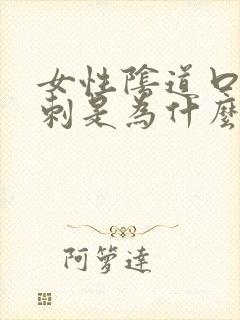 女性陰道口
刺是為什麼
阿箩達